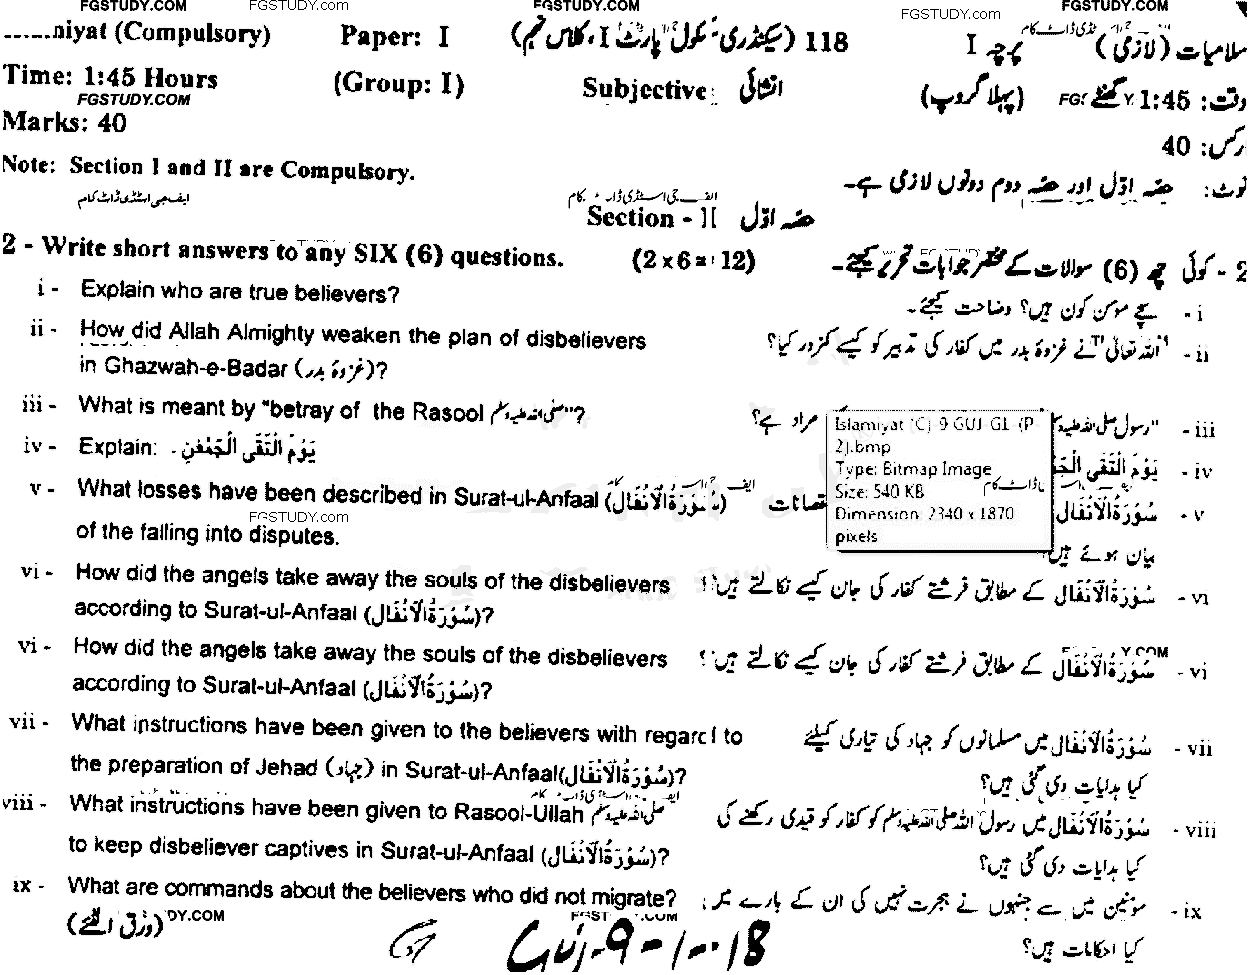 FGSTUDY.com FGSTUDY.com FGSTUDY.com FGSTUDY.com FGSTUDY.com
......niyat (Compulsory) Paper: I 118 (سیکنڈری سکول پارٹ I، کلاس نہم) پرچہ I (لازمی) سلامیات
Time: 1:45 Hours (Group: I) Subjective انشائی (پہلا گروپ) وقت: 1:45 گھنٹے
FGSTUDY.COM
Marks: 40
رکس: 40
Note: Section I and II are Compulsory. نوٹ: حصہ اوّل اور حصہ دوم دونوں لازمی ہے۔
ایف جی اسٹڈی ڈاٹ کام
Section - II حصہ اوّل
2 - Write short answers to any SIX (6) questions. (2 x 6 = 12) 2 - کوئی چھ (6) سوالات کے مختصر جوابات تحریر کیجئے۔
i - Explain who are true believers? i - سچے مومن کون ہیں؟ وضاحت کیجئے۔
ii - How did Allah Almighty weaken the plan of disbelievers ii - "اللہ تعالیٰ" نے غزوۂ بدر میں کفار کی تدبیر کو کیسے کمزور کیا؟
in Ghazwah-e-Badar (غزوۂ بدر)?
iii - What is meant by "betray of the Rasool صلی اللہ علیہ وسلم"? iii - "رسول صلی اللہ علیہ وسلم مراد ہے؟
iv - Explain: يَوْمَ الْتَقَى الْجَمْعٰنِ۔ iv - يَوْمَ الْتَقَى
v - What losses have been described in Surat-ul-Anfaal (سُوْرَةُ الْاَنْفَال) v - سُوْرَةُ الْاَنْفَال
FGSTUDY.com
of the falling into disputes. بیان ہوئے ہیں؟
Islamiyat (C)-9 GUJ-G1-(P
2).bmp
Type: Bitmap Image
Size: 540 KB
Dimension: 2340 x 1870
pixels
vi - How did the angels take away the souls of the disbelievers vi - سُوْرَةُ الْاَنْفَال کے مطابق فرشتے کفار کی جان کیسے نکالتے ہیں؟
according to Surat-ul-Anfaal (سُوْرَةُ الْاَنْفَال)?
vi - How did the angels take away the souls of the disbelievers vi - سُوْرَةُ الْاَنْفَال کے مطابق فرشتے کفار کی جان کیسے نکالتے ہیں؟
according to Surat-ul-Anfaal (سُوْرَةُ الْاَنْفَال)?
vii - What instructions have been given to the believers with regard to vii - سُوْرَةُ الْاَنْفَال میں مسلمانوں کو جہاد کی تیاری کیلئے
the preparation of Jehad (جہاد) in Surat-ul-Anfaal(سُوْرَةُ الْاَنْفَال)? کیا ہدایات دی گئی ہیں؟
viii - What instructions have been given to Rasool-Ullah صلی اللہ علیہ وسلم viii - سُوْرَةُ الْاَنْفَال میں رسول اللہ صلی اللہ علیہ وسلم کو کفار کو قیدی رکھنے کی
to keep disbeliever captives in Surat-ul-Anfaal (سُوْرَةُ الْاَنْفَال)? کیا ہدایات دی گئی ہیں؟
ix - What are commands about the believers who did not migrate? ix - مومنین میں سے جنہوں نے ہجرت نہیں کی ان کے بارے میں
(ورق الٹئے) کیا احکامات ہیں؟
Guj-9-1-18